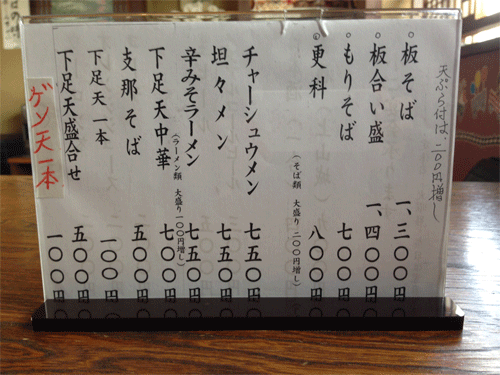 天ぷら付は、二〇〇円増し
。板そば 一、三〇〇円
。板合い盛 一、四〇〇円
。もりそば 七〇〇円
。更科 八〇〇円
(そば類 大盛り 二〇〇円増し)
チャーシュウメン 七五〇円
坦々メン 七五〇円
辛みそラーメン 七五〇円
(ラーメン類 大盛り一〇〇円増し)
下足天中華 七〇〇円
支那そば 五〇〇円
下足天一本 一〇〇円
下足天盛合せ 五〇〇円
ゲソ天一本 一〇〇円